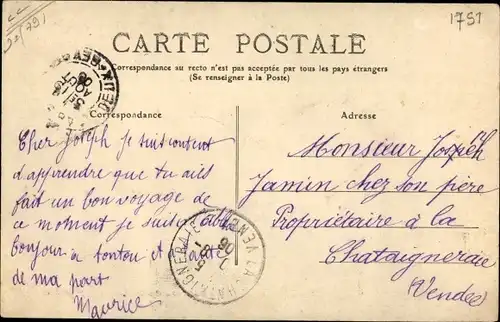 1791
1791
CARTE POSTALE
Correspondance au recto n'est pas acceptée par tous les pays étrangers
(Se renseigner à la Poste)
Correspondance
Adresse
Cher Joseph je suis content
d'apprendre que tu ais
fait un bon voyage de
ce moment je suis à
bonjour à tonton et tante
de ma part
Maurice
Monsieur Joseph
Jamin chez son père
Propriétaire à la
Chataigneraie
(Vendée)
LA CHATAIGNERAIE VENDÉE